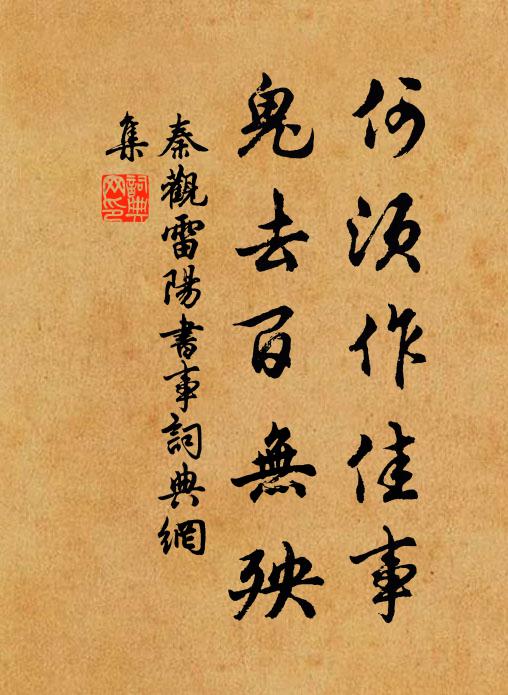 何須作佳事
鬼去百無殃
秦觀雷陽書事詞典網
集
詞典
网印